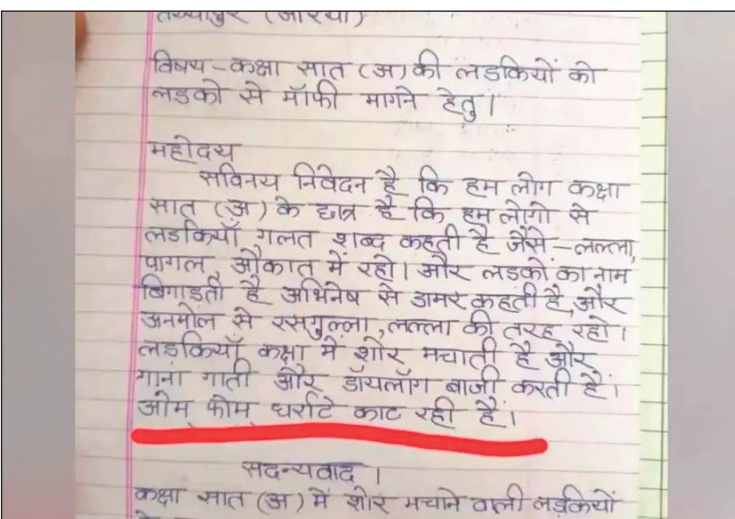 तय्यापुर (औरैया)
विषय - कक्षा सात (अ) की लडकियों को
लडको से मॉफी मागने हेतु।
महोदय
सविनय निवेदन है कि हम लोग कक्षा
सात (अ) के छात्र है कि हम लोगो से
लडकियाँ गलत शब्द कहती है जैसे - लल्ला,
पागल, औकात में रहो। और लडकों का नाम
बिगाडती है अभिनेष से डामर कहती है, और
अनमोल से रसगुल्ला, लल्ला की तरह रहो।
लडकियाँ कक्षा में शोर मचाती है और
गाना गाती और डॉयलॉग बाजी करती हैं।
ओम् फोम् धर्राटे काट रही हैं।
सदन्यवाद।
कक्षा सात (अ) में शोर मचाने वाली लडकियों